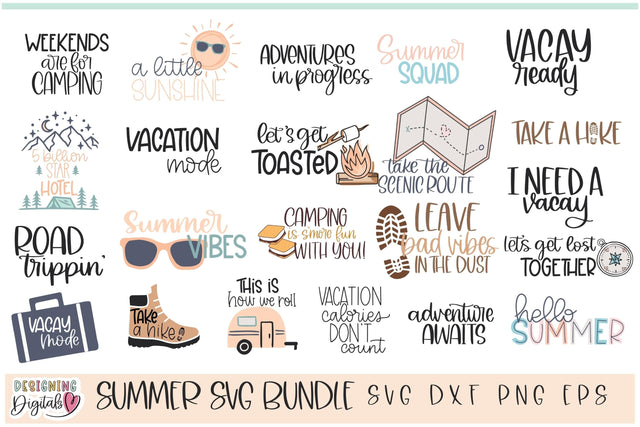 WEEKENDS
are for
CAMPING
a little
SUNSHINE
ADVENTURES
in progress
Summer
SQUAD
VACAY
ready
5 billion
STAR
HOTEL
VACATION
mode
let's get
TOASTED
take the
SCENIC ROUTE
TAKE A HIKE
I NEED A
vacay
ROAD
trippin'
Summer
VIBES
CAMPING
is s'more fun
WITH YOU!
LEAVE
bad vibes
IN THE DUST
let's get lost
TOGETHER
VACAY
mode
Take
a hike
THIS IS
how we roll
VACATION
calories
DON'T
count
adventure
AWAITS
hello
SUMMER
DESIGNING
Digitals
SUMMER SVG BUNDLE SVG DXF PNG EPS